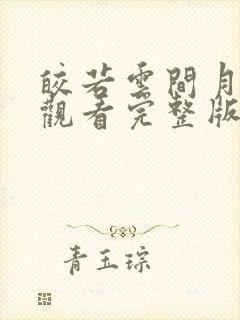 皎若雲間月
觀看完整版
青玉琮